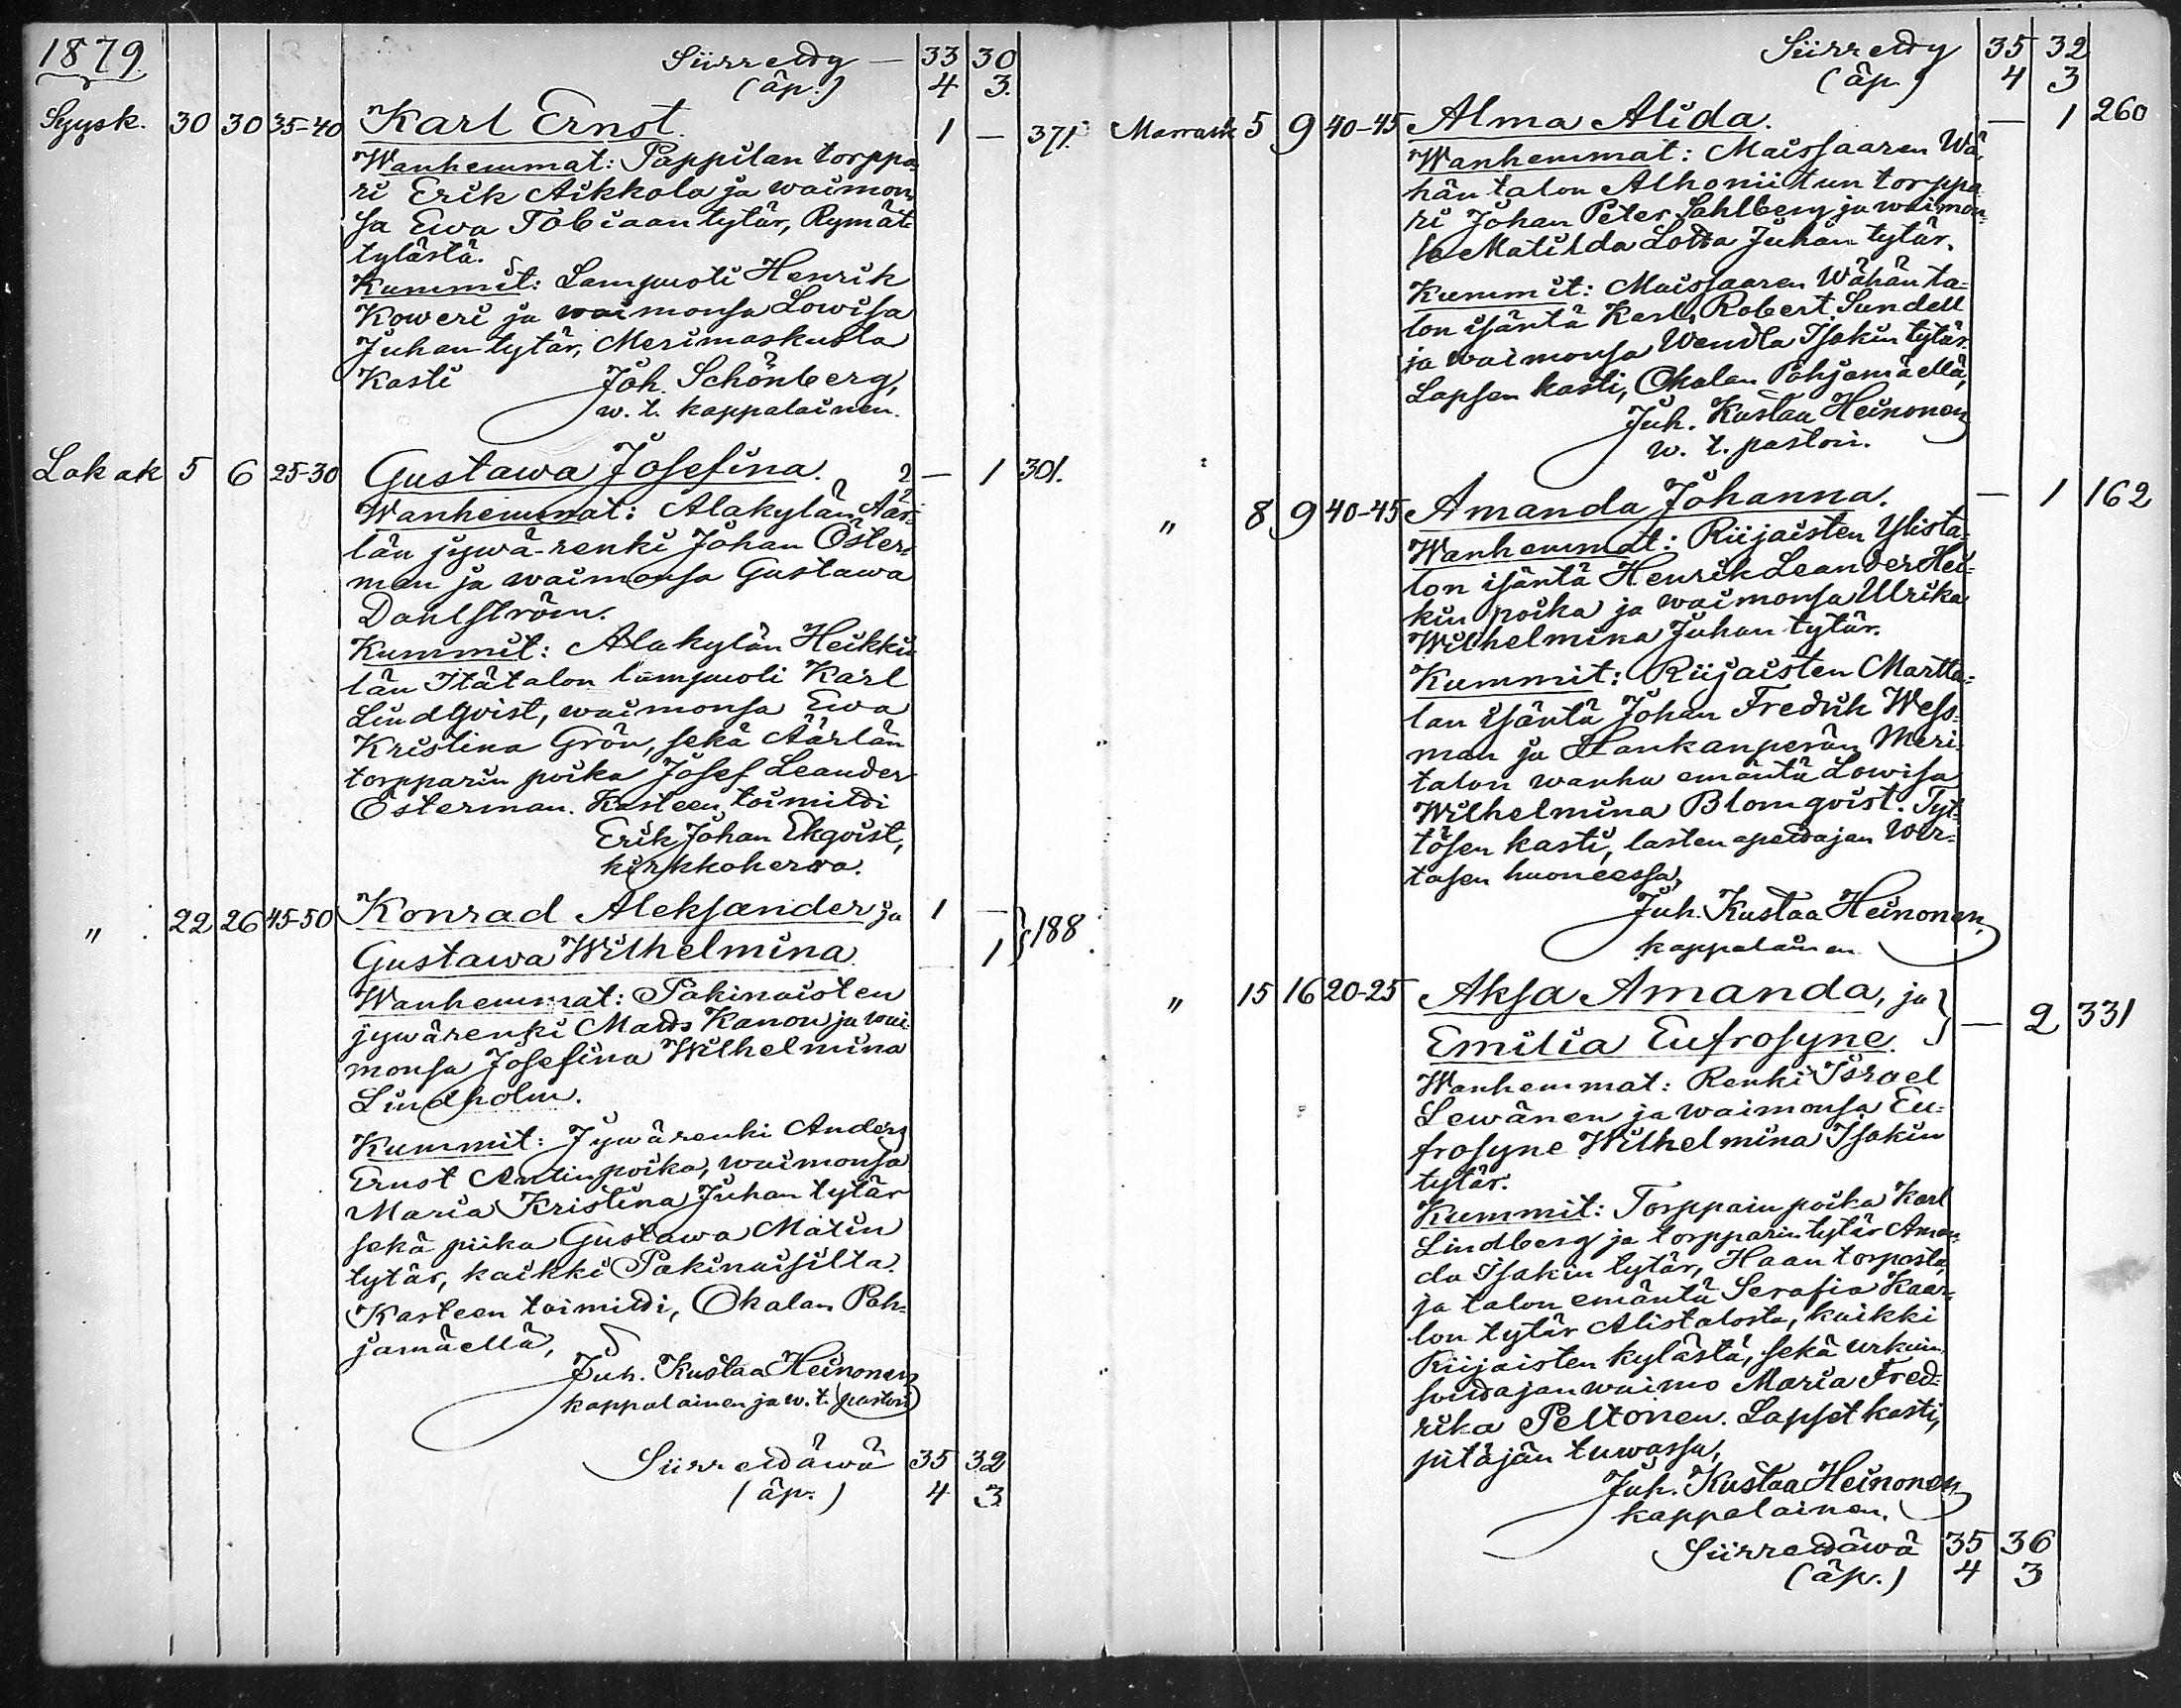 1879.
Siirretty — 33 30
(äp.) 4 3.
Syysk. 30 30 35-40 Karl Ernst. 1 — 371.
Wanhemmat: Pappilan torppa-
ri Erik Aikkola ja waimon-
sa Ewa Tobiaan tytär, Rymät-
tylästä.
Kummit: Lampuoti Henrik
Koweri ja waimonsa Lowisa
Juhan tytär, Merimaskusta
Kasti Joh. Schönberg,
w. t. kappalainen.
Lokak 5 6 25-30 Gustawa Josefina. 2 — 1 301.
Wanhemmat: Alakylän Äär-
län jywä-renki Johan Öster-
man ja waimonsa Gustawa
Dahlström.
Kummit: Alakylän Heikki-
län Itätalon lampuoti Karl
Lindqvist, waimonsa Ewa
Kristina Grön, sekä Äärlän
torpparin poika Josef Leander
Österman. Kasteen toimitti
Erik Johan Ekqvist,
kirkkoherra.
" 22 26 45-50 Konrad Aleksander ja 1 —
Gustawa Wilhelmina. 1 } 188
Wanhemmat: Pakinaisten
jywärenki Matts Kanon ja wai-
monsa Josefina Wilhelmina
Lindholm.
Kummit: Jywärenki Anders
Ernst Antin poika, waimonsa
Maria Kristina Juhan tytär
sekä piika Gustawa Matin
tytär, kaikki Pakinaisilta.
Kasteen toimitti, Okalan Poh-
jamäellä,
Juh. Kustaa Heinonen
kappalainen ja w. t. pastori
Siirrettäwä 35 32
(äp.) 4 3
Siirretty 35 32
(äp.) 4 3
Marrask 5 9 40-45 Alma Alida. — 1 260
Wanhemmat: Maissaaren Wä-
hän talon Alhoniitun torppa-
ri Johan Peter Sahlberg ja waimon-
sa Matilda Lotta Juhan tytär.
Kummit: Maissaaren Wähän ta-
lon isäntä Karl Robert Sundell
ja waimonsa Wendla Isakin tytär.
Lapsen kasti, Okalan Pohjamäellä,
Juh. Kustaa Heinonen
w. t. pastori.
" 8 9 40-45 Amanda Johanna. — 1 162
Wanhemmat: Riijaisten Ylista-
lon isäntä Henrik Leander Hei-
kin poika ja waimonsa Ulrika
Wilhelmina Juhan tytär.
Kummit: Riijaisten Martta-
lan isäntä Johan Fredrik Wess-
man ja Haukanperän Meri-
talon wanha emäntä Lowisa
Wilhelmina Blomqvist. Tyt-
tösen kasti, lasten opettajan Wir-
tasen huoneessa,
Juh. Kustaa Heinonen,
kappalainen
" 15 16 20-25 Aksa Amanda, ja
Emilia Eufrosyne. } — 2 331
Wanhemmat: Renki Israel
Lewänen ja waimonsa Eu-
frosyne Wilhelmina Isakin
tytär.
Kummit: Torpparin poika Karl
Lindberg ja torpparin tytär Aman-
da Isakin tytär, Haan torpasta,
ja talon emäntä Serafia Kaar-
lon tytär Alistalosta, kaikki
Riijaisten kylästä, sekä urkuin-
soittajan waimo Maria Fred-
rika Peltonen. Lapset kasti,
pitäjän tuwassa,
Juh. Kustaa Heinonen
kappalainen.
Siirrettäwä 35 36
(äp.) 4 3